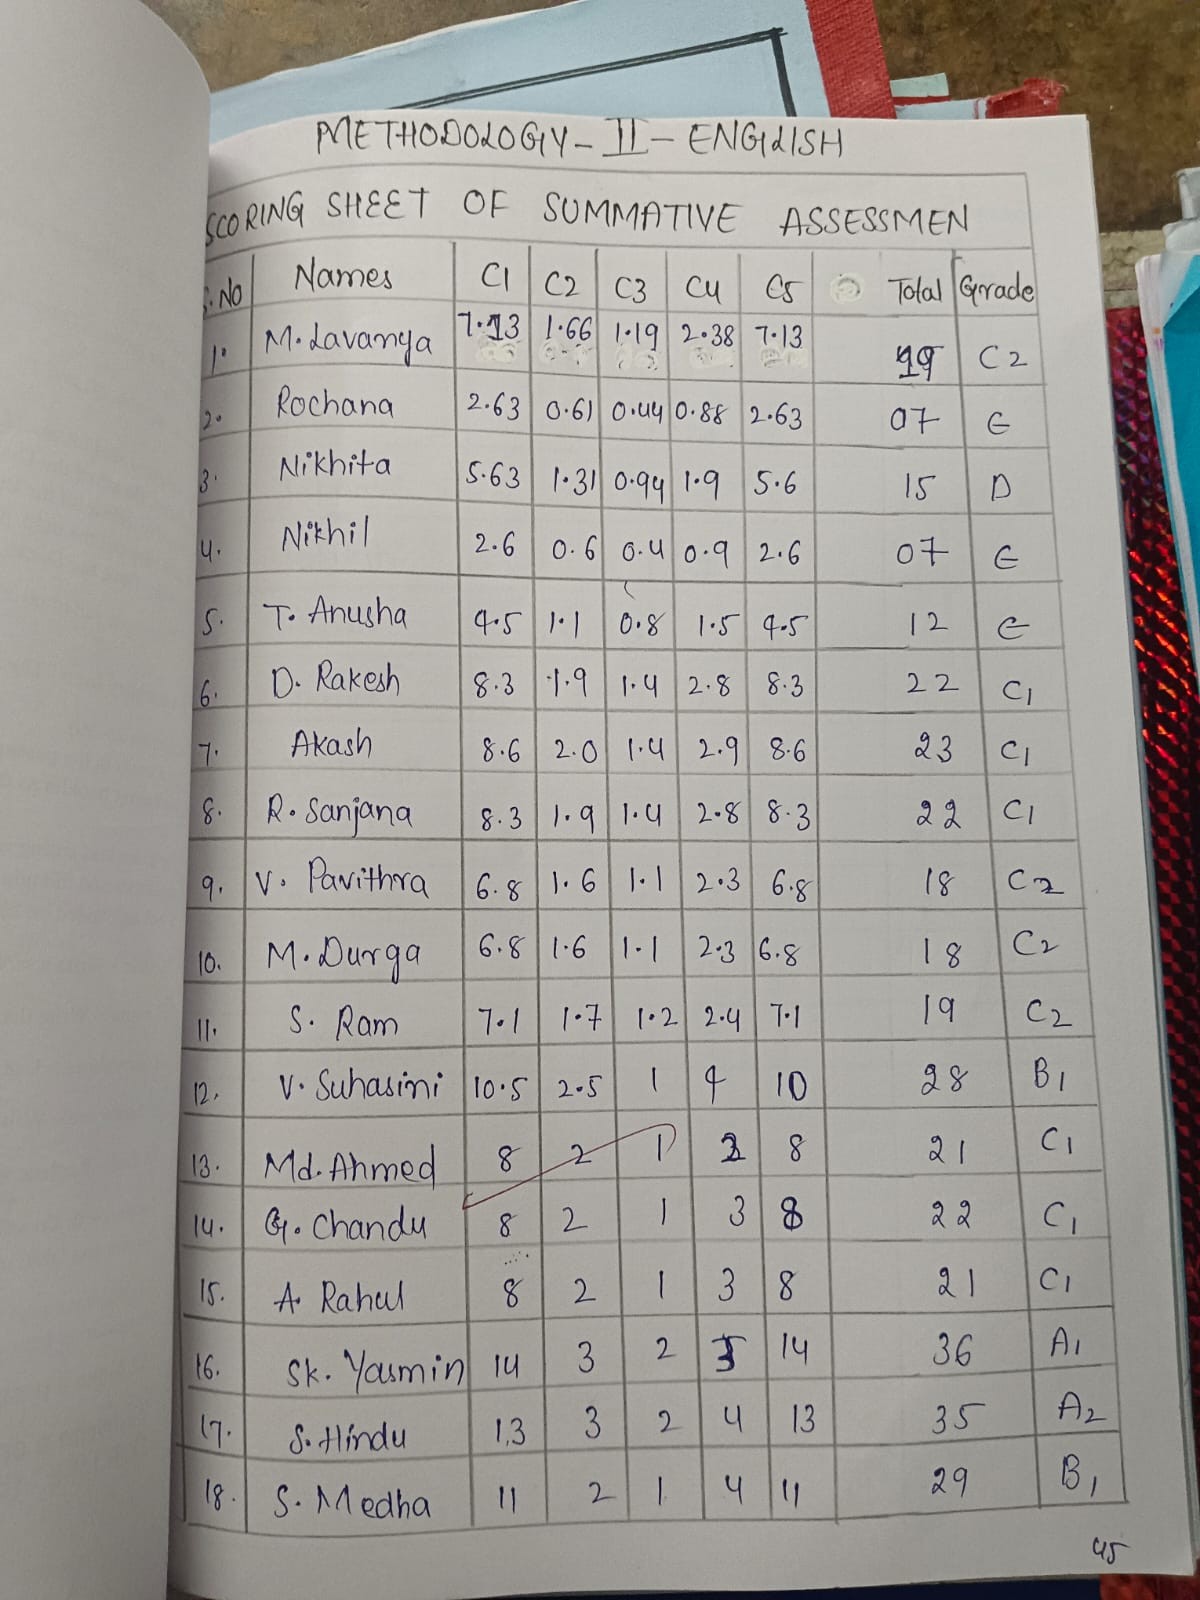 METHODOLOGY - II - ENGLISH
SCORING SHEET OF SUMMATIVE ASSESSMEN
S.No Names C1 C2 C3 C4 C5 Total Grade
1. M. Lavanya 7.13 1.66 1.19 2.38 7.13 19 C2
2. Rochana 2.63 0.61 0.44 0.88 2.63 07 E
3. Nikhita 5.63 1.31 0.94 1.9 5.6 15 D
4. Nikhil 2.6 0.6 0.4 0.9 2.6 07 E
5. T. Anusha 4.5 1.1 0.8 1.5 4.5 12 E
6. D. Rakesh 8.3 1.9 1.4 2.8 8.3 22 C1
7. Akash 8.6 2.0 1.4 2.9 8.6 23 C1
8. R. Sanjana 8.3 1.9 1.4 2.8 8.3 22 C1
9. V. Pavithra 6.8 1.6 1.1 2.3 6.8 18 C2
10. M. Durga 6.8 1.6 1.1 2.3 6.8 18 C2
11. S. Ram 7.1 1.7 1.2 2.4 7.1 19 C2
12. V. Suhasini 10.5 2.5 1 4 10 28 B1
13. Md. Ahmed 8 2 1 8 21 C1
14. G. Chandu 8 2 1 3 8 22 C1
15. A. Rahul 8 2 1 3 8 21 C1
16. Sk. Yasmin 14 3 2 5 14 36 A1
17. S. Hindu 13 3 2 4 13 35 A2
18. S. Medha 11 2 1 4 11 29 B1
45